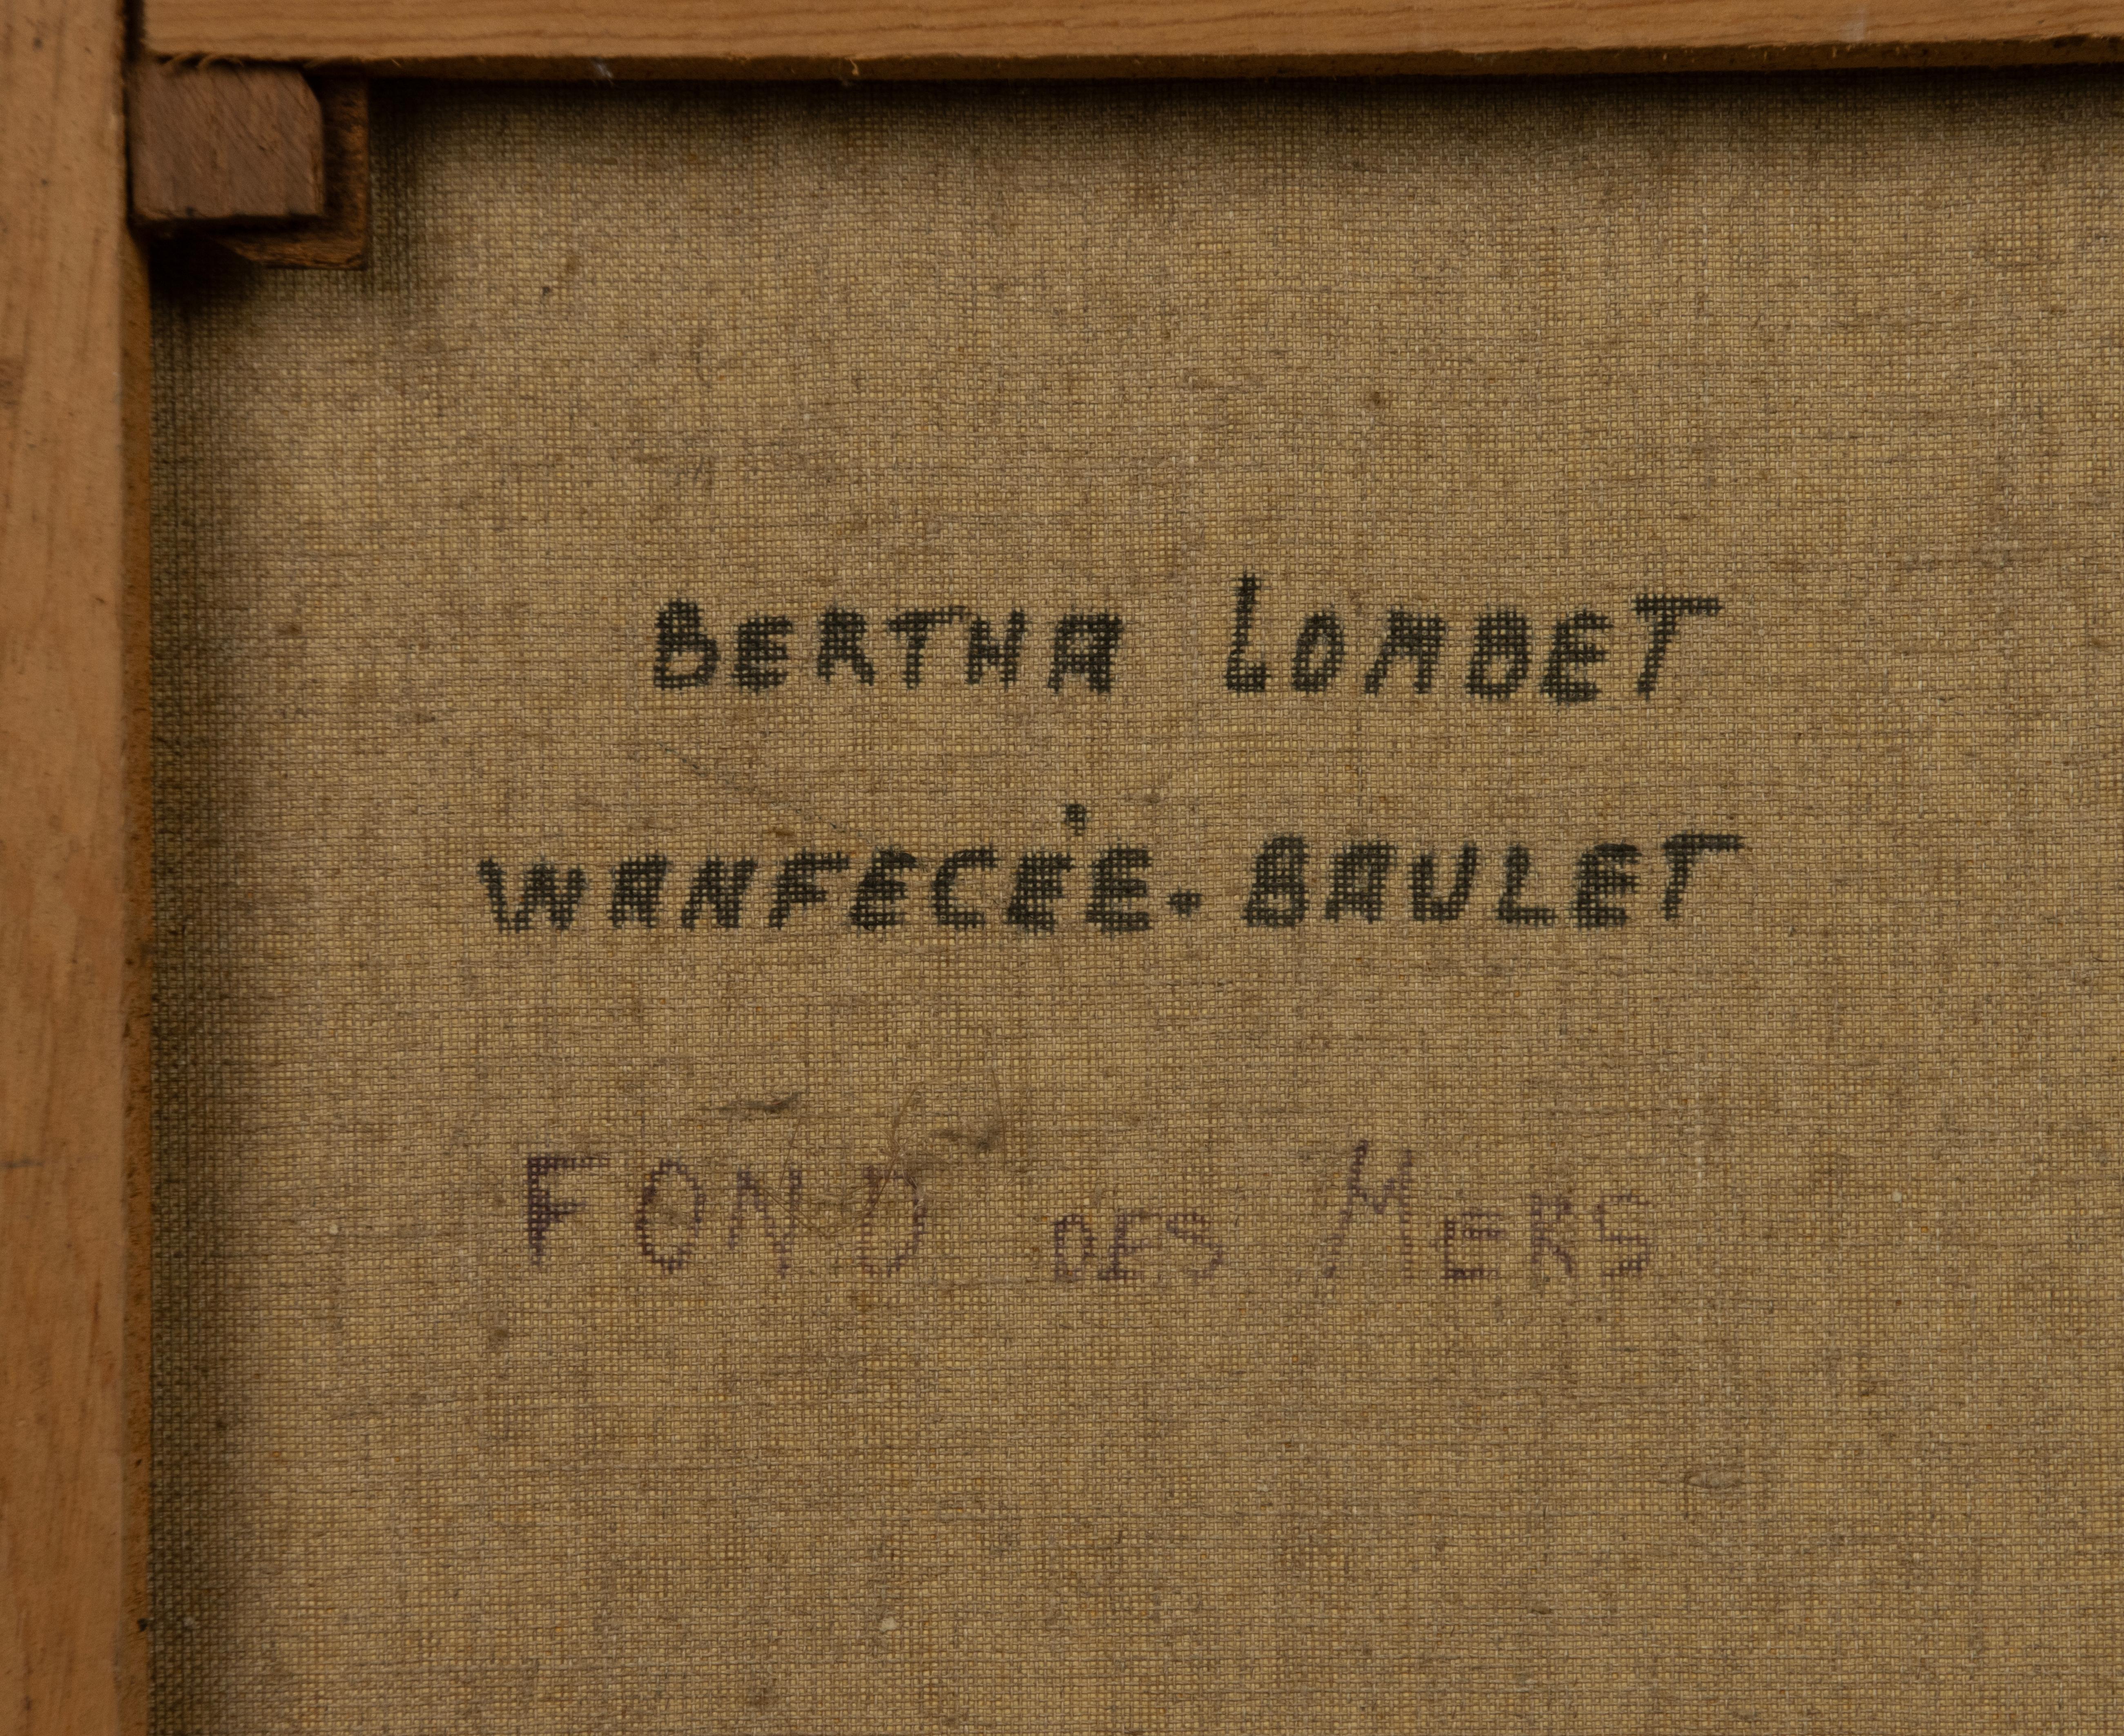 BERTHA LOMBET
WANFECÉE. BAULET
FOND DES MERS